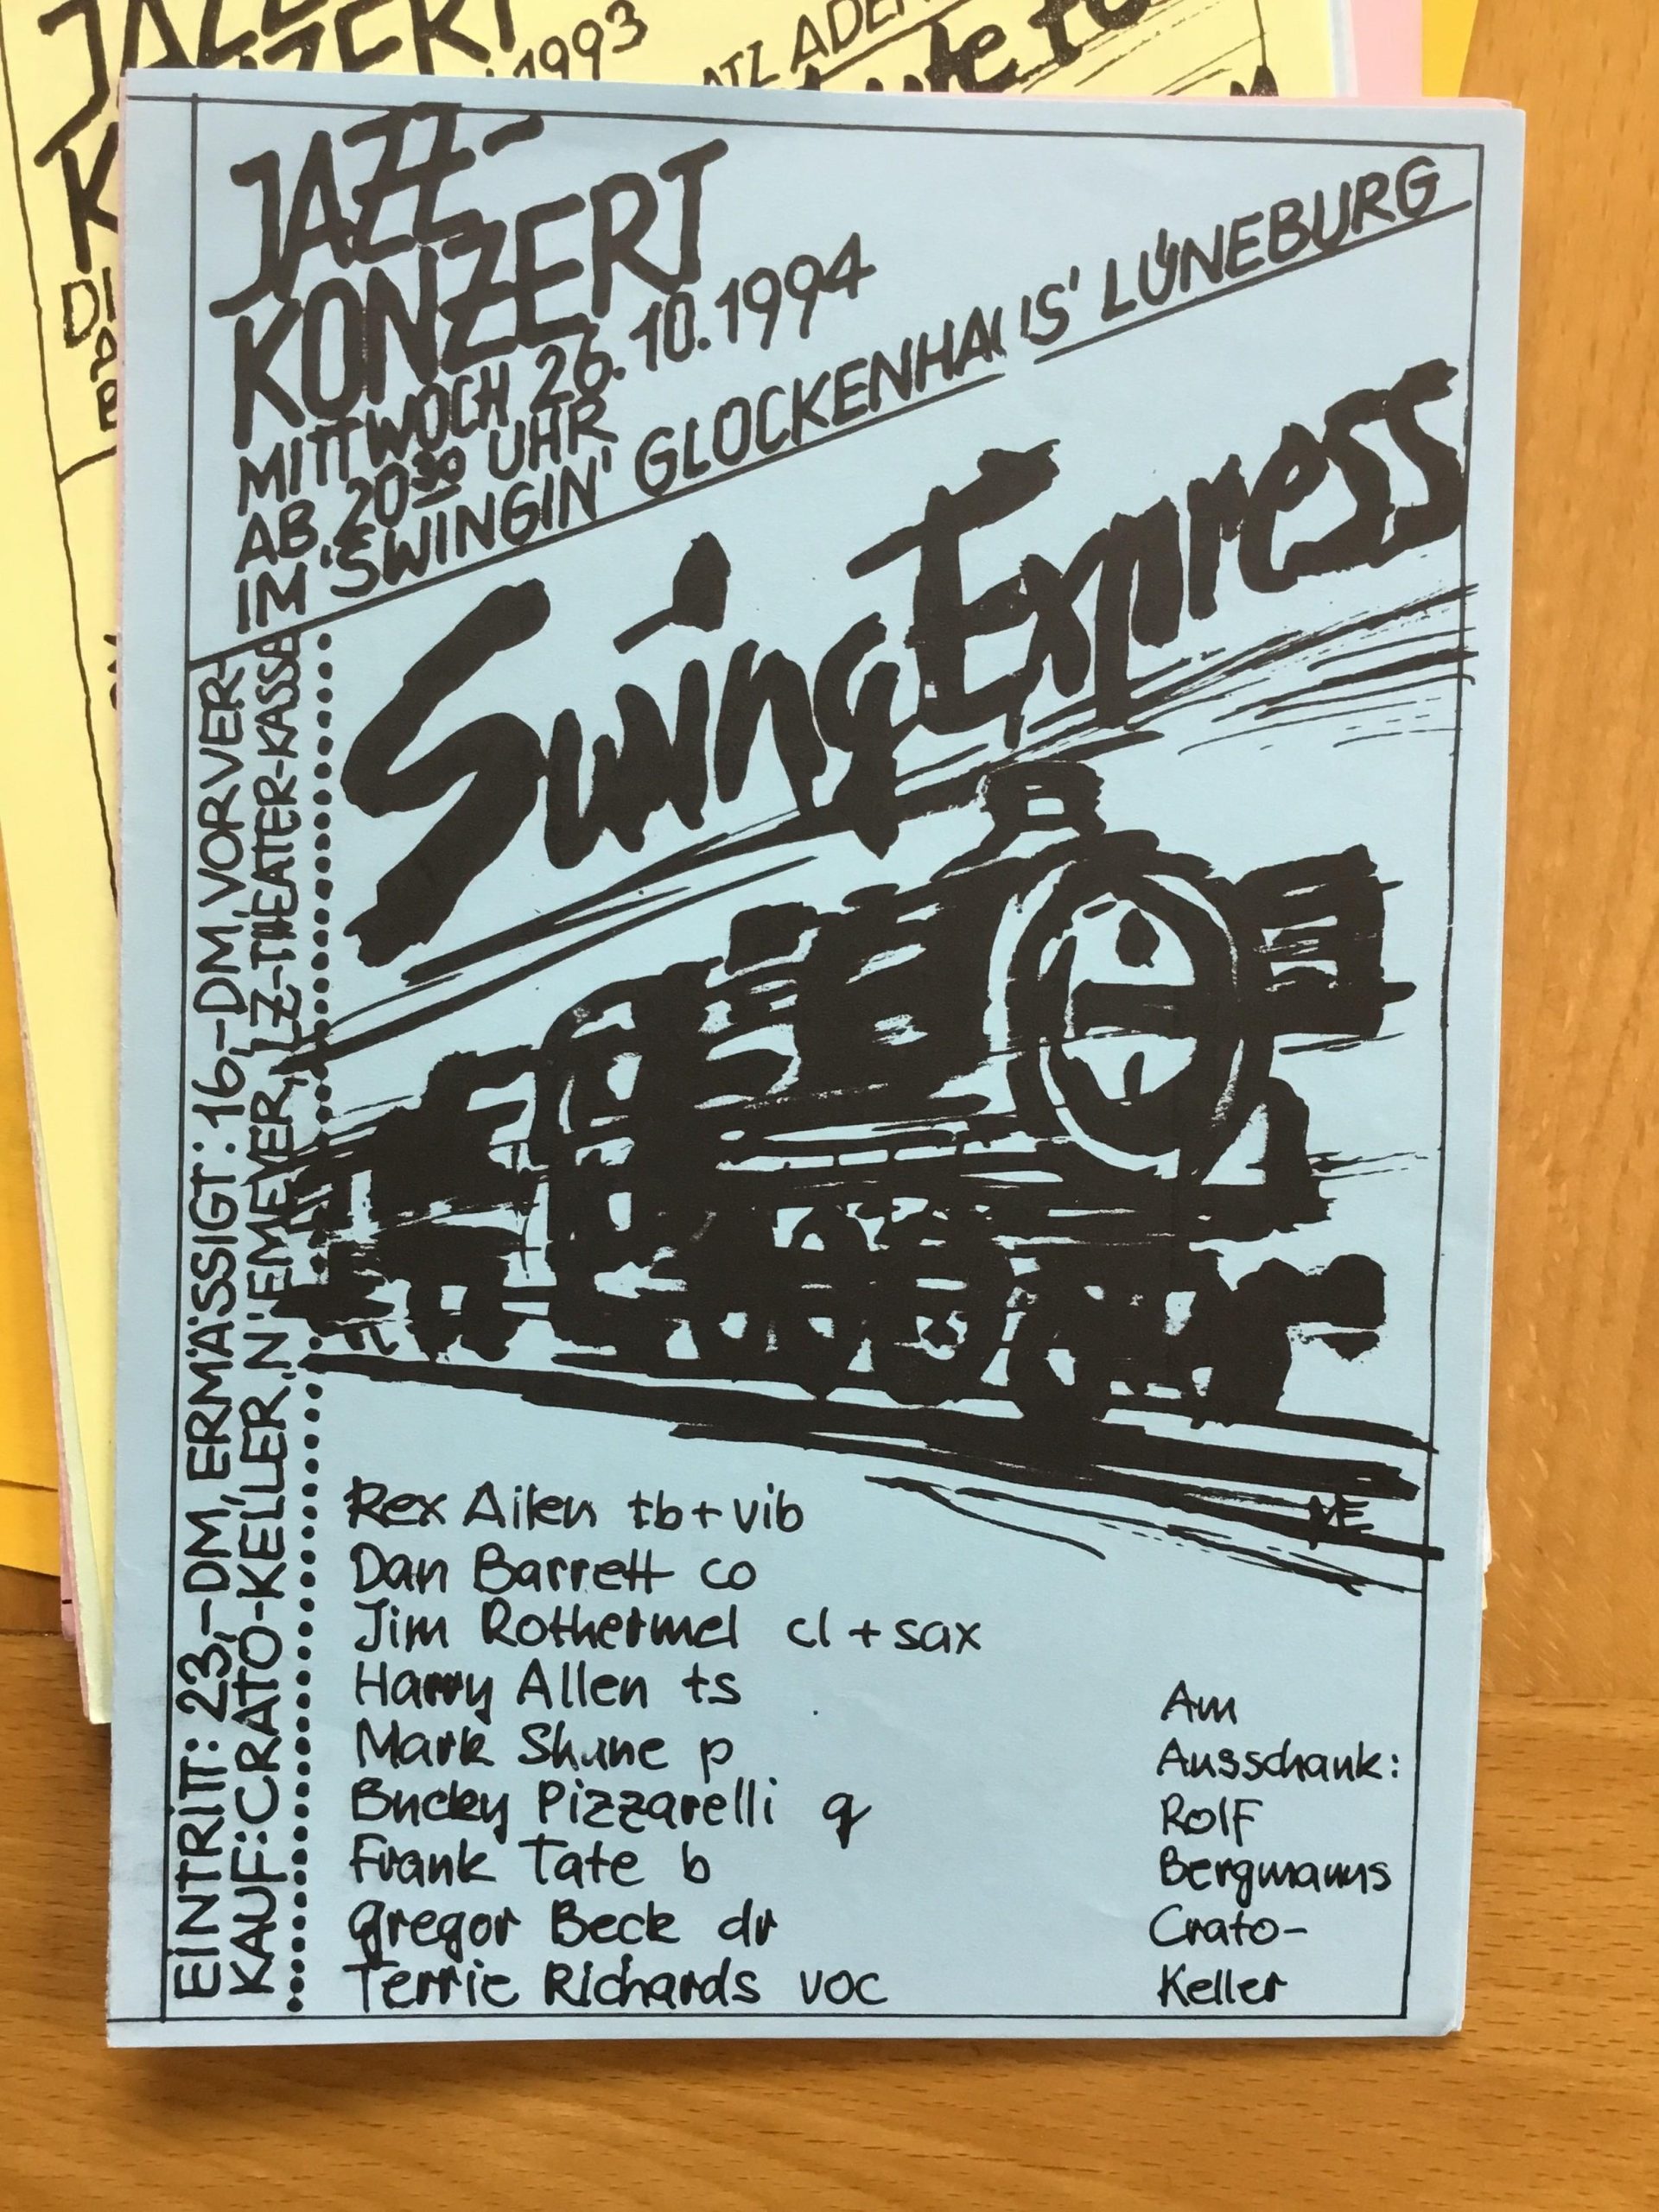 JAZZ-
KONZERT
MITTWOCH 26.10.1994
AB 20³⁰ UHR
IM 'SWINGIN' GLOCKENHAUS' LÜNEBURG
Swing Express
EINTRITT: 23,-DM, ERMÄSSIGT: 16,-DM, VORVER-
KAUF: CRATO-KELLER, N'EMEYER, LZ-THEATER-KASSA
ME
Rex Allen tb+vib
Dan Barrett co
Jim Rothermel cl + sax
Harry Allen ts
Mark Shane p
Bucky Pizzarelli g
Frank Tate b
Gregor Beck dr
Terrie Richards voc
Am
Ausschank:
Rolf
Bergmanns
Crato-
Keller
JAZZ-
1993